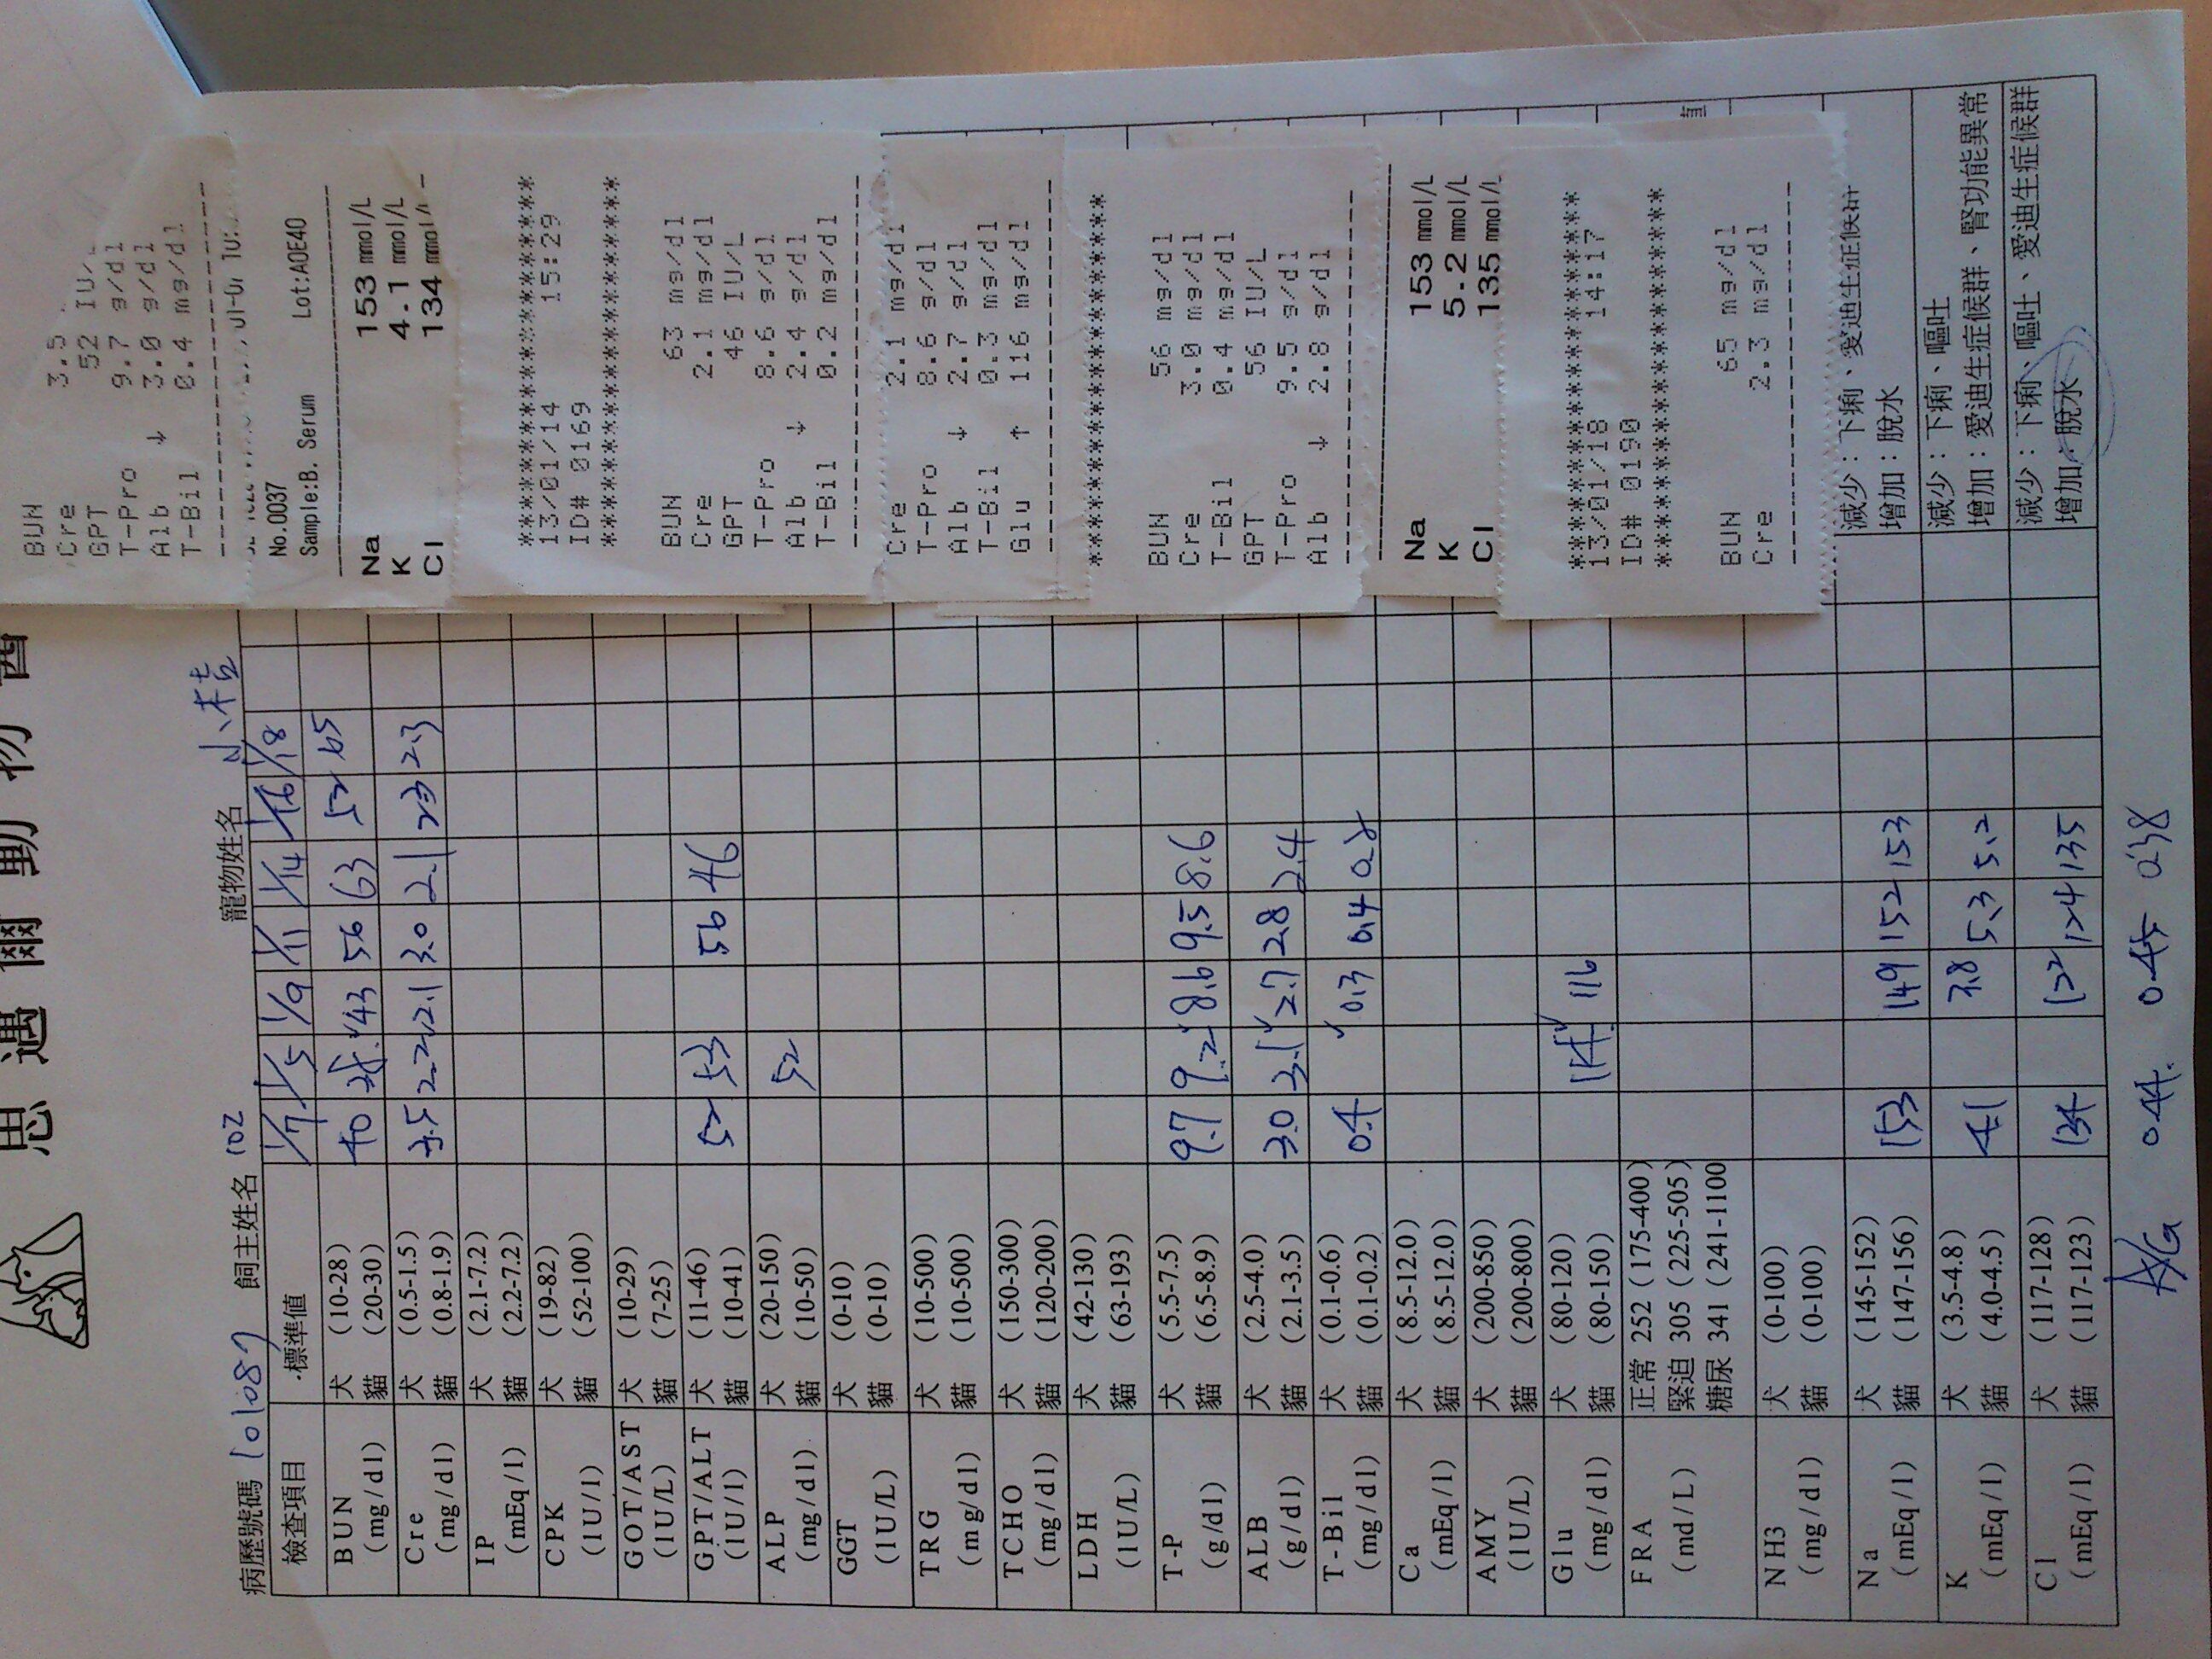 思遇爾動物醫
病歷號碼 101087 飼主姓名 102 寵物姓名 小桔
檢查項目 標準值 1/7 1/5 1/9 1/11 1/14 1/16 1/18
BUN 犬 (10-28) 40 43 56 63 52 65
(mg/dl) 貓 (20-30)
Cre 犬 (0.5-1.5) 3.5 2.2 2.1 3.0 2.1 2.3 2.3
(mg/dl) 貓 (0.8-1.9)
IP 犬 (2.1-7.2)
(mEq/l) 貓 (2.2-7.2)
CPK 犬 (19-82)
(1U/l) 貓 (52-100)
GOT/AST 犬 (10-29)
(1U/L) 貓 (7-25)
GPT/ALT 犬 (11-46) 52 53 56 46
(1U/l) 貓 (10-41)
ALP 犬 (20-150) 52
(mg/dl) 貓 (10-50)
GGT 犬 (0-10)
(1U/L) 貓 (0-10)
TRG 犬 (10-500)
(mg/dl) 貓 (10-500)
TCHO 犬 (150-300)
(mg/dl) 貓 (120-200)
LDH 犬 (42-130)
(1U/L) 貓 (63-193)
T-P 犬 (5.5-7.5) 9.7 9.2 8.6 9.5 8.6
(g/dl) 貓 (6.5-8.9)
ALB 犬 (2.5-4.0) 3.0 3.1 2.7 2.8 2.4
(g/dl) 貓 (2.1-3.5)
T-Bil 犬 (0.1-0.6) 0.4 0.3 0.4 0.2
(mg/dl) 貓 (0.1-0.2)
Ca 犬 (8.5-12.0)
(mEq/l) 貓 (8.5-12.0)
AMY 犬 (200-850)
(1U/L) 貓 (200-800)
Glu 犬 (80-120) 116
(mg/dl) 貓 (80-150)
FRA 正常 252 (175-400)
(md/L) 緊迫 305 (225-505)
糖尿 341 (241-1100
NH3 犬 (0-100)
(mg/dl) 貓 (0-100)
Na 犬 (145-152) 153 149 152 153 減少：下痢、愛迪生症候群
(mEq/l) 貓 (147-156) 增加：脫水
K 犬 (3.5-4.8) 4.1 3.8 5.3 5.2 減少：下痢、嘔吐
(mEq/l) 貓 (4.0-4.5) 增加：愛迪生症候群、腎功能異常
Cl 犬 (117-128) 134 122 124 135 減少：下痢、嘔吐、愛迪生症候群
(mEq/l) 貓 (117-123) 增加：脫水
A/G 0.44. 0.45 0.38
BUN
Cre 3.5
GPT 52 IU/L
T-Pro 9.7 g/dl
Alb ↓ 3.0 g/dl
T-Bil 0.4 mg/dl
No.0037
Sample:B. Serum Lot:A0E40
Na 153 mmol/L
K 4.1 mmol/L
Cl 134 mmol/L
13/01/14 15:29
ID# 0169
BUN 63 mg/dl
Cre 2.1 mg/dl
GPT 46 IU/L
T-Pro 8.6 g/dl
Alb ↓ 2.4 g/dl
T-Bil 0.2 mg/dl
Cre 2.1 mg/dl
T-Pro 8.6 g/dl
Alb ↓ 2.7 g/dl
T-Bil 0.3 mg/dl
Glu ↑ 116 mg/dl
BUN 56 mg/dl
Cre 3.0 mg/dl
T-Bil 0.4 mg/dl
GPT 56 IU/L
T-Pro 9.5 g/dl
Alb ↓ 2.8 g/dl
Na 153 mmol/L
K 5.2 mmol/L
Cl 135 mmol/L
13/01/18 14:17
ID# 0190
BUN 65 mg/dl
Cre 2.3 mg/dl